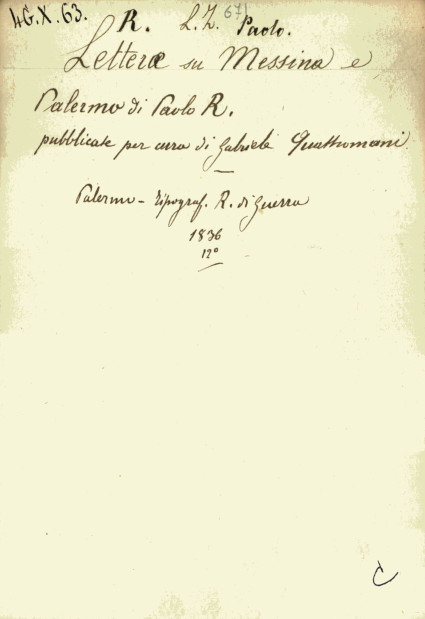 4G.X.63.
R. L.Z. 67 Paolo.
Lettere su Messina e
Palermo di Paolo R.
pubblicate per cura di Gabriele Quattromani
Palermo - Tipograf. R. di Guerra
1836
12°
C